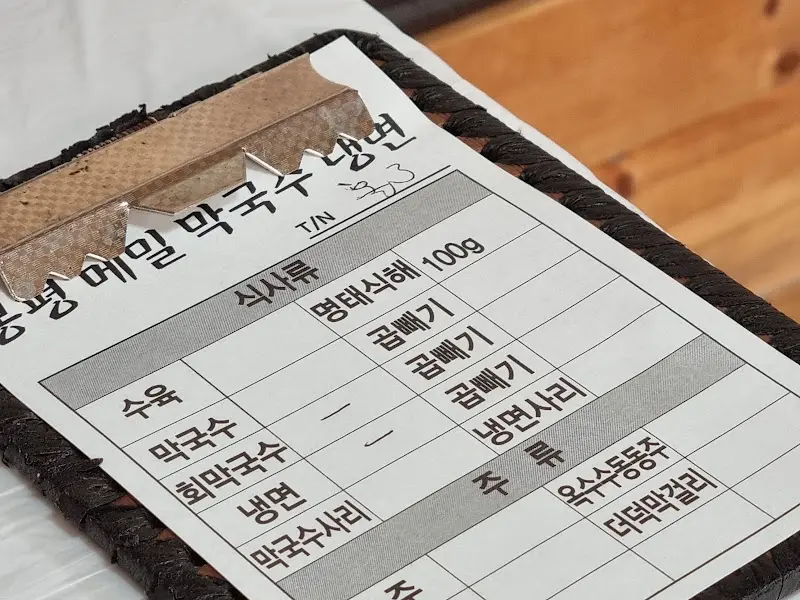 봉평 메밀 막국수 냉면
T/N
식사류
수육 명태식해 100g
막국수 곱빼기
회막국수 — 곱빼기
냉면 — 곱빼기
막국수사리 냉면사리
주 류
옥수수동동주
주 더덕막걸리